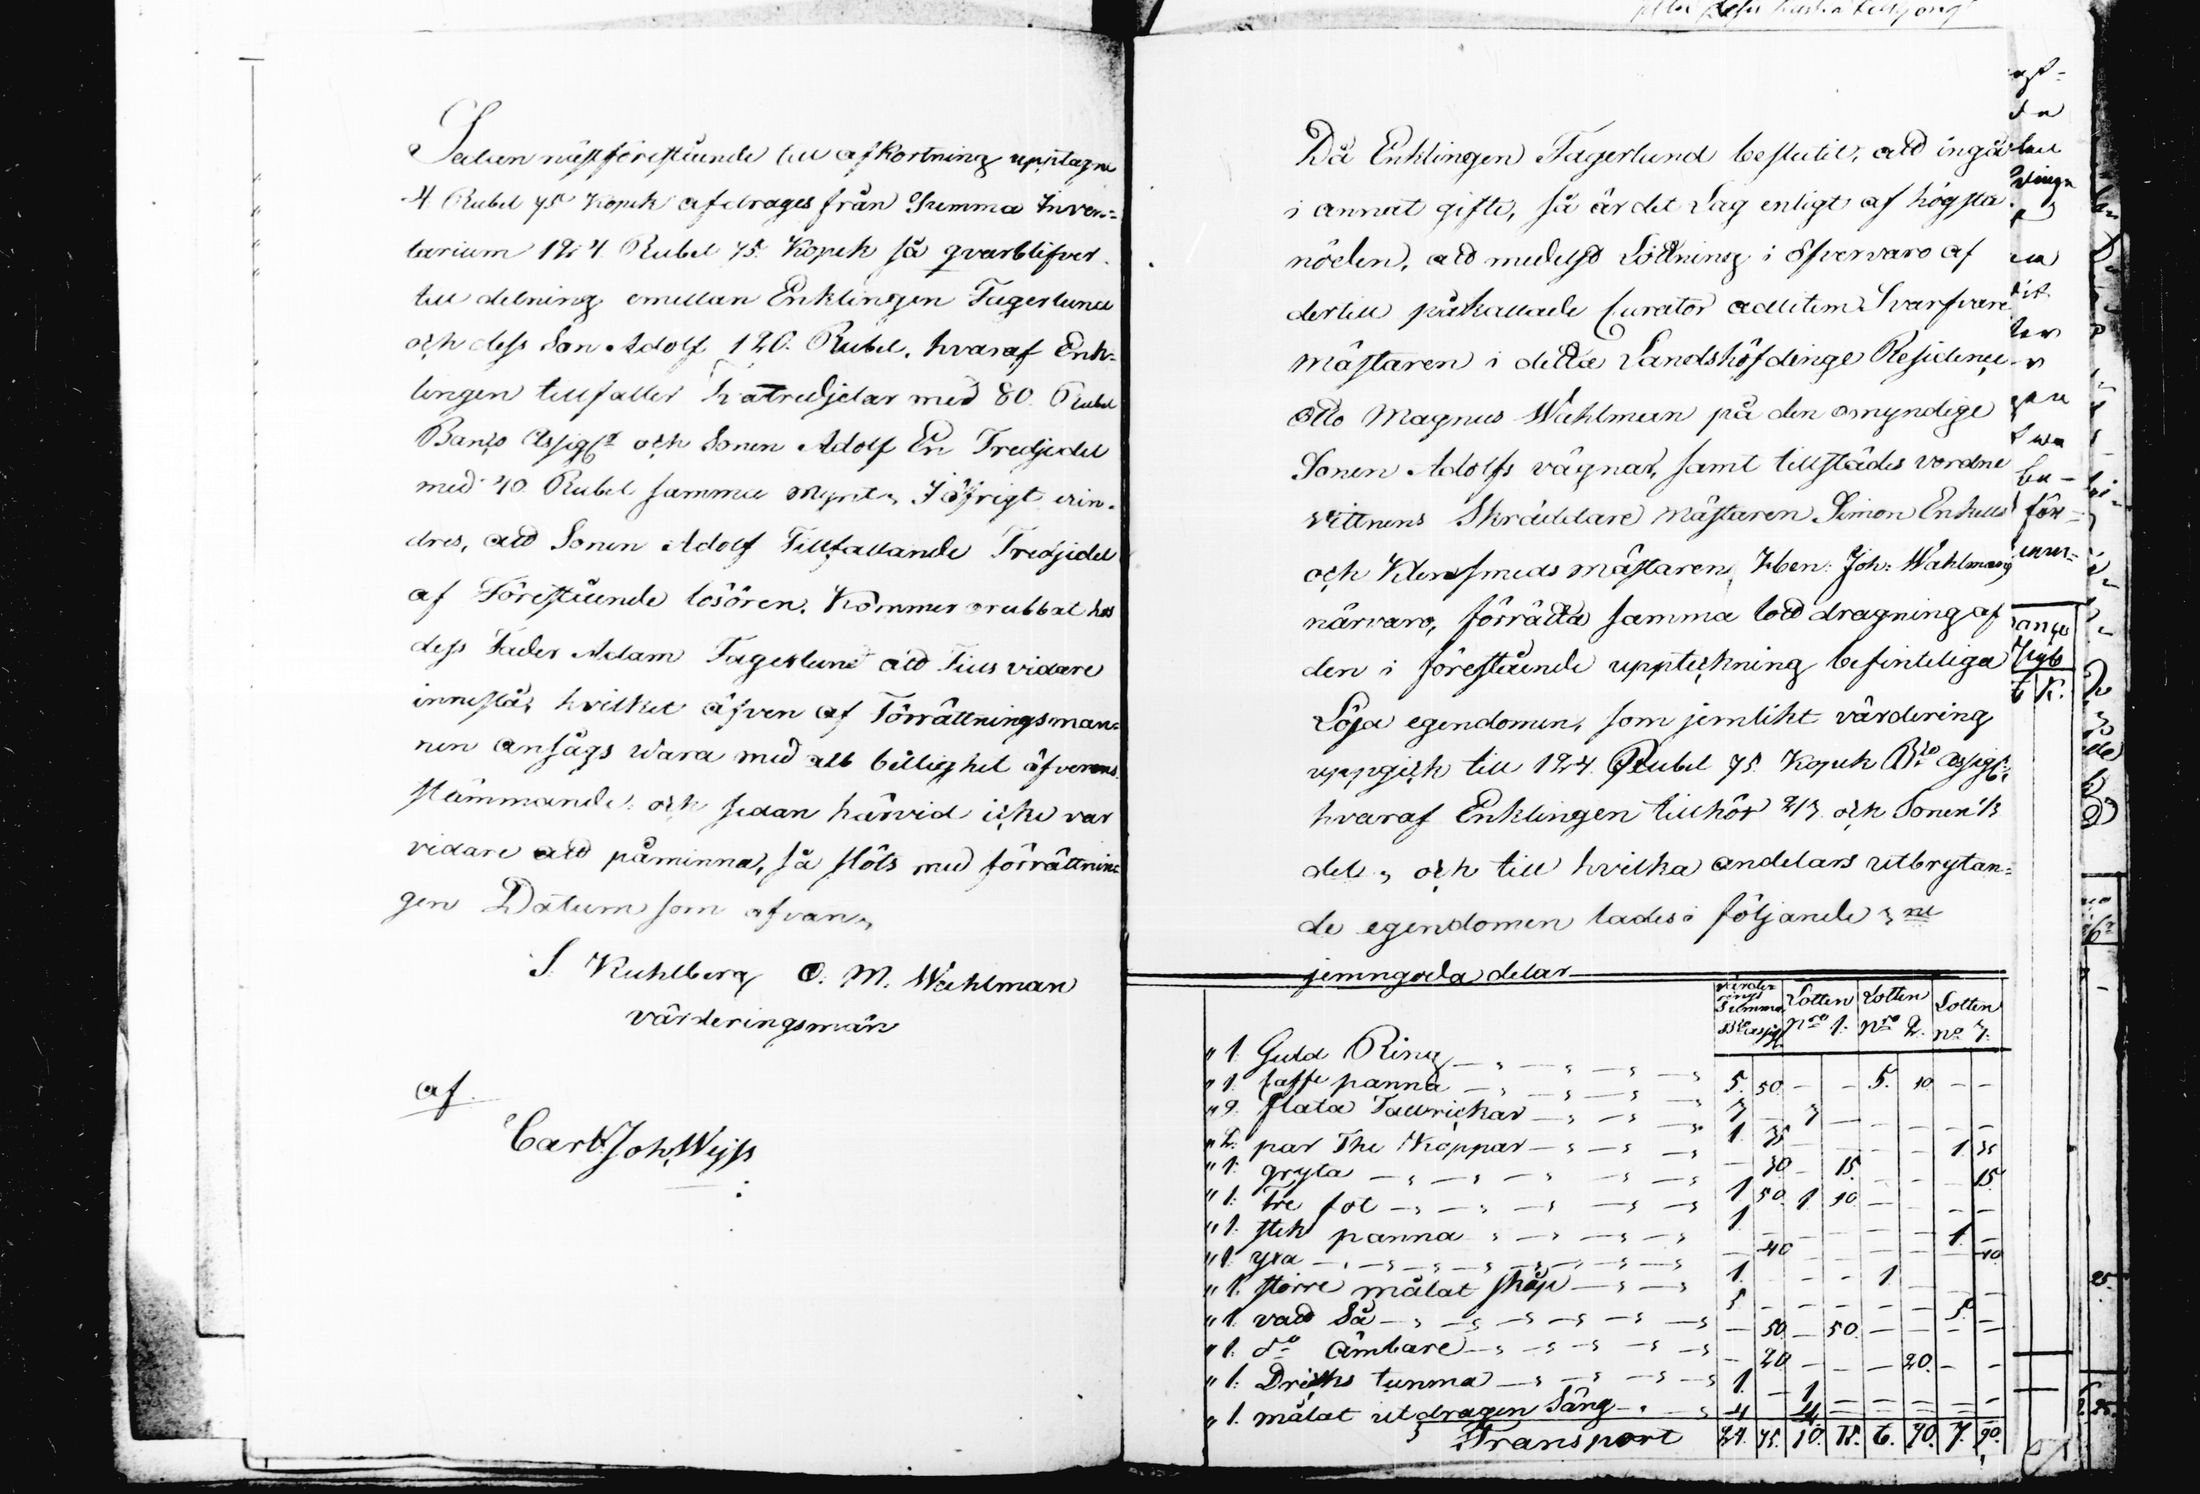 Sedan näst förestående till afkortning upptagne
4 Rubel 75 Kopek afdrages från Summa Inven=
tarium 124 Rubel 75 Kopek så qvarblifver
till delning emellan Enklingen Fagerlund
och dess Son Adolf 120. Rubel, hvaraf Enk=
lingen tillfaller Tvåtredjelar med 80. Rubel
Banco Assigr och Sonen Adolf En Tredjedel
med 40. Rubel samma mynt, I öfrigt erin=
dres, att Sonen Adolf Tillfallande Tredjedel
af Förestående lösören, Kommer orubbat hos
dess Fader Adam Fagerlund att Tills vidare
innestå, hvilket äfven af Förrättningsman=
nen ansågs wara med all billighet öfverens
stämmande och sedan härvid icke var
vidare att påminna, så slöts med förrättnin=
gen Datum som ofvan,
S. Kuhlberg O. M. Wahlman
värderingsmän
af
Carl Joh. Wijss
Då Enklingen Fagerlund beslutit, att ingå
i annat gifte, så är det Lag enligt af högsta
nöden, att medelst Lottning i öfvervaro af
dertill påkallade Curator adlitem Svarfvare
Mästaren i detta Landshöfdinge Residence
Otto Magnus Wahlman på den omyndige
Sonen Adolfs vägnar, samt tillstädes vordne
vittnens Skräddare Mästaren Simon Enhus
och Klensmeds Mästaren Eben: Joh: Wahlmans
närvaro, förrätta samma lott dragning af
den i förestående uppteckning befinteliga
Lösa egendomen, som jemlikt värdering
uppgick till 124. Rubel 75. Kopek Bco Assigr,
hvaraf Enklingen tillhör 2/3 och Sonen 1/3
del, och till hvilka andelars utbrytan=
de egendomen lades i följande 3ne
jemngoda delar
Värderings Summa Bco Assigr Lotten Nro 1. Lotten Nro 2. Lotten No 3.
" 1. Guld Ring 5. 50 — — 5. 50 — —
" 1. Caffe panna 3 — 3 — — — — —
" 9. flata Tallrickar 1. 35 — — — — 1 35
" 2. par The Koppar — 30 — 15 — — — 15
" 1. gryta 1 50 1 50 — — — —
" 1. Tre fot 1. — — — — — 1. —
" 1. stek panna — 40 — — — — — 40
" 1. yxa 1. — — — 1. — — —
" 1. större målat skåp 5 — — — — — 5. —
" 1. vatt Så — 50 — 50 — — — —
" 1. do ämbare — 20 — — — 20. — —
" 1. Dricks tunna 1. — 1 — — — — —
" 1. målat utdragen Säng 4 — 4 — — — — —
Transport 24. 75. 10. 15. 6. 70. 7. 90.